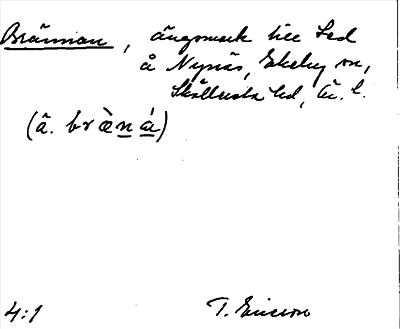 Brännan, ängsmark till Led
å Nynäs, Ekeby sn,
Skölleda hd, U. l.
(å. bræ̀ná)
4:1 T. Ericsson